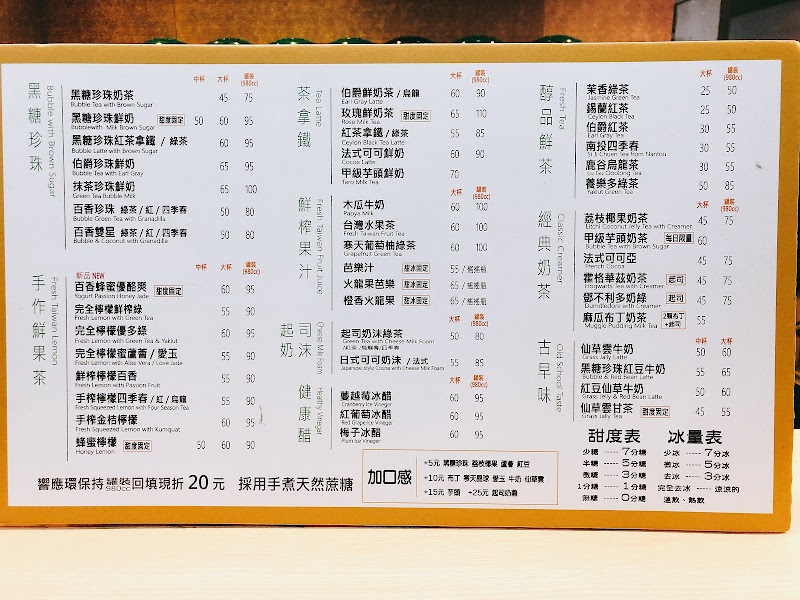 黑糖珍珠
Bubble with Brown Sugar
中杯 大杯 罐裝(980cc)
黑糖珍珠奶茶 45 75
Bubble Tea with Brown Sugar
黑糖珍珠鮮奶 甜度固定 50 60 95
Bubblewith Milk Brown Sugar
黑糖珍珠紅茶拿鐵 / 綠茶 60 90
Bubble Latte with Brown Sugar
伯爵珍珠鮮奶 65 95
Bubble Tea with Earl Gray
抹茶珍珠鮮奶 65 100
Bubble Green Tea with Milk
百香珍珠 綠茶 / 紅 / 四季春 50 80
Bubble Green Tea with Granadilla
百香雙星 綠茶 / 紅 / 四季春 50 80
Bubble & Coconut with Granadilla
手作鮮果茶
Fresh Taiwan Lemon
新品 NEW 中杯 大杯 罐裝(980cc)
百香蜂蜜優酪爽 甜度固定 60 95
Yogurt Passion Honey Jade
完全檸檬鮮榨綠 55 90
Fresh Lemon with Green Tea
完全檸檬優多綠 60 95
Fresh Lemon with Green Tea & Yaklut
完全檸檬蜜蘆薈 / 愛玉 55 90
Fresh Lemon with Aloe Vera / Love Jade
鮮榨檸檬百香 55 90
Fresh Lemon with Passion Fruit
手榨檸檬四季春 / 紅 / 烏龍 55 90
Fresh Squeezed Lemon with Four Season Tea
手榨金桔檸檬 60 95
Fresh Squeezed Lemon with Kumquat
蜂蜜檸檬 甜度固定 50 60 90
Honey Lemon
茶拿鐵
Tea Latte
大杯 罐裝(980cc)
伯爵鮮奶茶 / 烏龍 60 90
Earl Gray Latte
玫瑰鮮奶茶 甜度固定 65 110
Rose Milk Tea
紅茶拿鐵 / 綠茶 55 85
Ceylon Black Tea Latte
法式可可鮮奶 60 90
Cocoa Latte
甲級芋頭鮮奶 70
Taro Milk Tea
鮮榨果汁
Fresh Taiwan Fruit Juice
大杯 罐裝(980cc)
木瓜牛奶 60 100
Papya Milk
台灣水果茶 60 100
Fresh Taiwan Fruit Tea
寒天葡萄柚綠茶 60 100
Grapefruit Green Tea
芭樂汁 甜冰固定 55 / 搖搖瓶
火龍果芭樂 甜冰固定 65 / 搖搖瓶
橙香火龍果 甜冰固定 65 / 搖搖瓶
起司奶沫
Cheese Milk Foam
大杯 罐裝(980cc)
起司奶沫綠茶 50 80
Green Tea with Cheese Milk Foam
日式可可奶沫 / 法式 55 85
Japanese-style Cocoa with Cheese Milk Foam
健康醋
Healthy Vinegar
大杯 罐裝(980cc)
蔓越莓冰醋 60 95
Cranberry Ice Vinegar
紅葡萄冰醋 60 95
Red Grape Ice Vinegar
梅子冰醋 60 95
Plum Ice Vinegar
醇品鮮茶
Fresh Tea
大杯 罐裝(980cc)
茉香綠茶 25 50
Jasmine Green Tea
錫蘭紅茶 25 50
Ceylon Black Tea
伯爵紅茶 30 55
Earl Gray Tea
南投四季春 30 55
Si Ji Chuen Tea from Nantou
鹿谷烏龍茶 30 55
Lu Gu Oolong Tea
養樂多綠茶 50 85
Yaklut Green Tea
經典奶茶
Classic Creamer
大杯 罐裝(980cc)
荔枝椰果奶茶 45 75
Litchi Coconut Jelly Tea with Creamer
甲級芋頭奶茶 每日限量 60
Bubble Tea with Brown Sugar
法式可可亞 45 75
French Cocoa
霍格華茲奶茶 起司 45 75
Hogwarts Tea with Creamer
鄧不利多奶綠 起司 45 75
Dumbledore with Creamer
麻瓜布丁奶茶 2顆布丁+起司 55
Muggle Pudding Milk Tea
古早味
Old School Taste
中杯 大杯 罐裝(980cc)
仙草凍牛奶 50 60
Grass Jelly Latte
黑糖珍珠紅豆牛奶 55 65
Bubble & Red Bean Latte
紅豆仙草牛奶 50 60
Grass Jelly & Red Bean Latte
仙草凍甘茶 甜度固定 45 55
Grass Jelly Tea
甜度表 冰量表
少糖 ----- 7分糖 少冰 ----- 7分冰
半糖 ----- 5分糖 微冰 ----- 5分冰
微糖 ----- 3分糖 去冰 ----- 3分冰
1分糖 ----- 1分糖 完全去冰 ----- 涼涼的
無糖 ----- 0分糖 溫飲、熱飲
響應環保持罐裝980cc回填現折 20 元 採用手煮天然蔗糖
加口感
+5元 黑糖珍珠 荔枝椰果 蘆薈 紅豆
+10元 布丁 寒天晶球 愛玉 牛奶 仙草凍
+15元 芋頭 +25元 起司奶霜